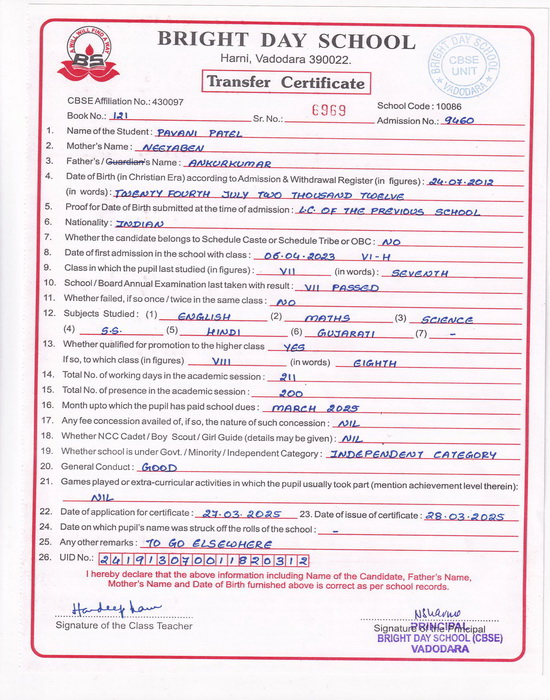 A WILL WILL FIND A WAY
BS
BRIGHT DAY SCHOOL
Harni, Vadodara 390022.
BRIGHT DAY SCHOOL
CBSE
UNIT
★ VADODARA ★
Transfer Certificate
CBSE Affiliation No.: 430097
School Code : 10086
Book No.: 121 Sr. No.: 6969 Admission No.: 9460
1. Name of the Student : PAVANI PATEL
2. Mother's Name : NEETABEN
3. Father's / Guardian's Name : ANKURKUMAR
4. Date of Birth (in Christian Era) according to Admission & Withdrawal Register (in figures) : 24.07.2012
(in words) : TWENTY FOURTH JULY TWO THOUSAND TWELVE
5. Proof for Date of Birth submitted at the time of admission : L.C. OF THE PREVIOUS SCHOOL
6. Nationality : INDIAN
7. Whether the candidate belongs to Schedule Caste or Schedule Tribe or OBC : NO
8. Date of first admission in the school with class : 06.04.2023 VI-H
9. Class in which the pupil last studied (in figures) : VII (in words) : SEVENTH
10. School / Board Annual Examination last taken with result : VII PASSED
11. Whether failed, if so once / twice in the same class : NO
12. Subjects Studied : (1) ENGLISH (2) MATHS (3) SCIENCE
(4) S.S. (5) HINDI (6) GUJARATI (7) -
13. Whether qualified for promotion to the higher class YES
If so, to which class (in figures) VIII (in words) EIGHTH
14. Total No. of working days in the academic session : 211
15. Total No. of presence in the academic session : 200
16. Month upto which the pupil has paid school dues : MARCH 2025
17. Any fee concession availed of, if so, the nature of such concession : NIL
18. Whether NCC Cadet / Boy Scout / Girl Guide (details may be given) : NIL
19. Whether school is under Govt. / Minority / Independent Category : INDEPENDENT CATEGORY
20. General Conduct : GOOD
21. Games played or extra-curricular activities in which the pupil usually took part (mention achievement level therein) :
NIL
22. Date of application for certificate : 27.03.2025 23. Date of issue of certificate : 28.03.2025
24. Date on which pupil's name was struck off the rolls of the school : -
25. Any other remarks : TO GO ELSEWHERE
26. UID No.: 241913070011820312
I hereby declare that the above information including Name of the Candidate, Father's Name,
Mother's Name and Date of Birth furnished above is correct as per school records.
Signature of the Class Teacher
Signature of the Principal
PRINCIPAL
BRIGHT DAY SCHOOL (CBSE)
VADODARA